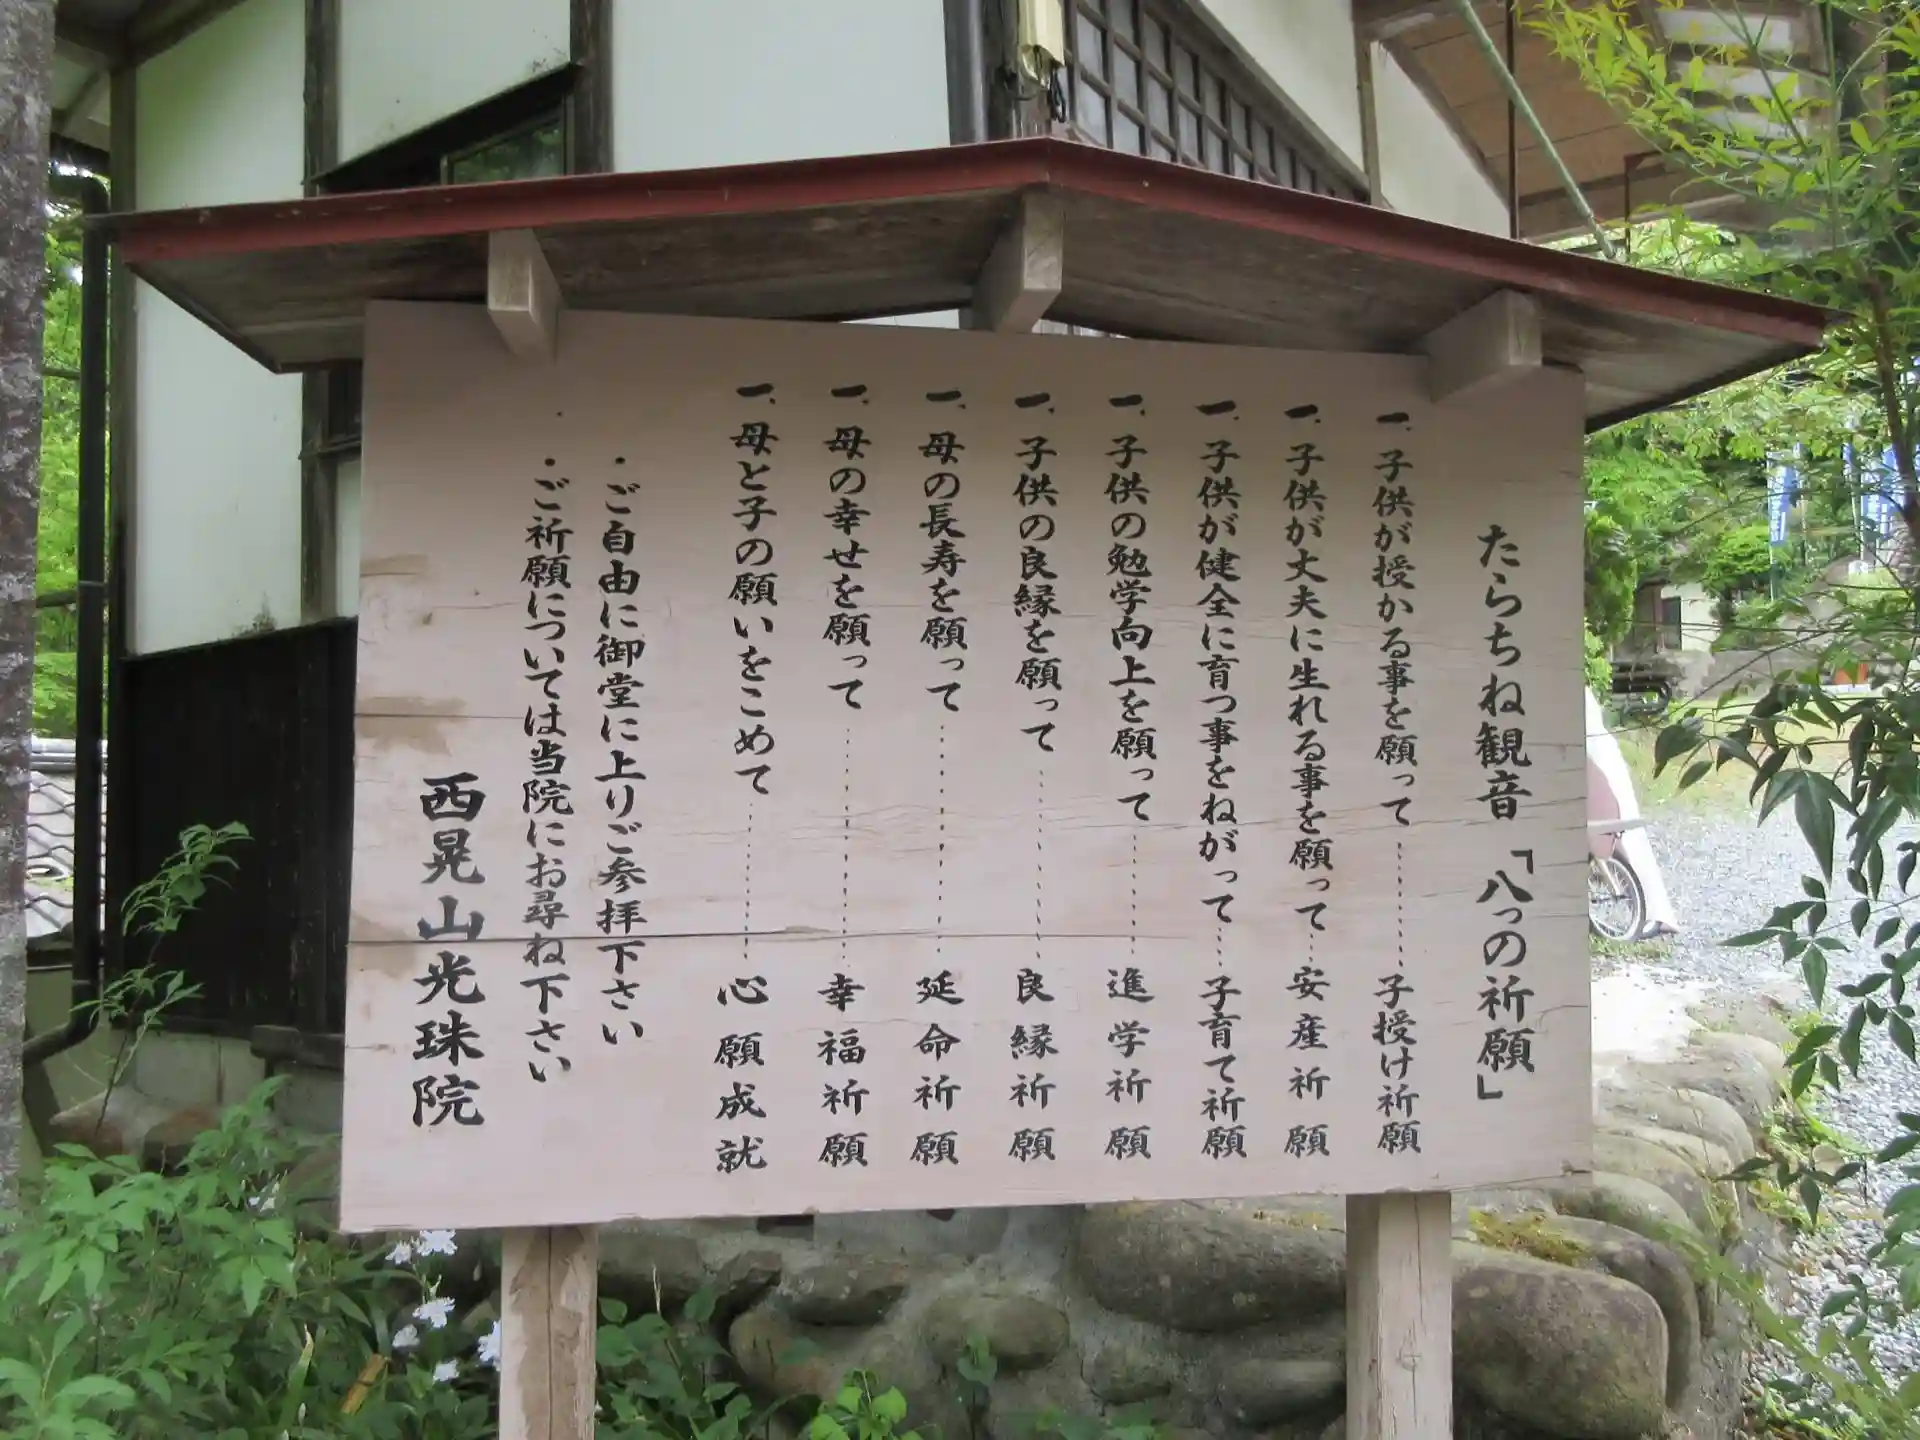 たらちね観音「八っの祈願」
一、子供が授かる事を願って……子授け祈願
一、子供が丈夫に生れる事を願って……安産祈願
一、子供が健全に育つ事をねがって……子育て祈願
一、子供の勉学向上を願って……進学祈願
一、子供の良縁を願って……良縁祈願
一、母の長寿を願って……延命祈願
一、母の幸せを願って……幸福祈願
一、母と子の願いをこめて……心願成就
・ご自由に御堂に上りご参拝下さい
・ご祈願については当院にお尋ね下さい
西晃山光珠院